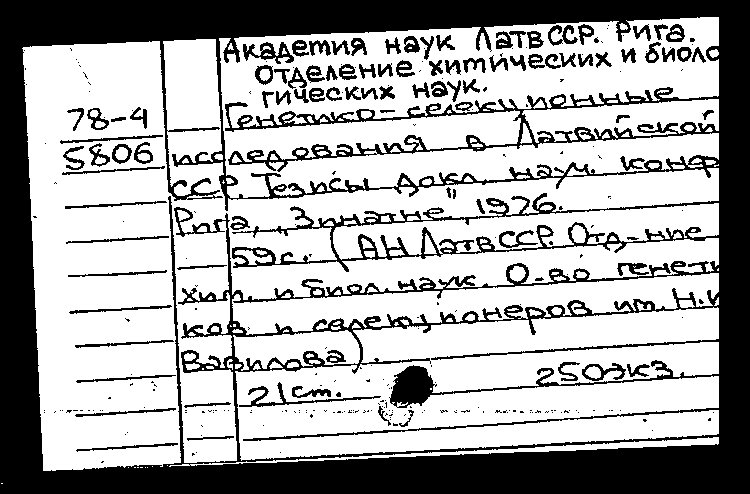 Академия наук ЛатвССР. Рига.
Отделение химических и биоло
гических наук.
78-4 Генетико-селекционные
5806 исследования в Латвийской
ССР. Тезисы докл. науч. конф
Рига, „Зинатне", 1976.
59 с. (АН ЛатвССР. Отд-ние
хим. и биол. наук. О-во генети
ков и селекционеров им. Н.И
Вавилова).
21 см. 250 экз.